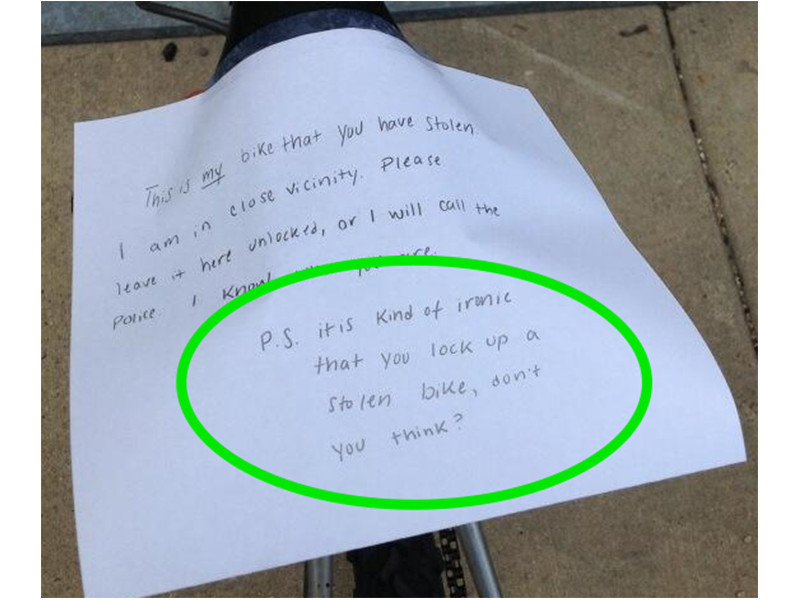 This is my bike that you have stolen.
I am in close vicinity. Please
leave it here unlocked, or I will call the
Police I know are.
P.S. it is kind of ironic
that you lock up a
stolen bike, don't
you think?